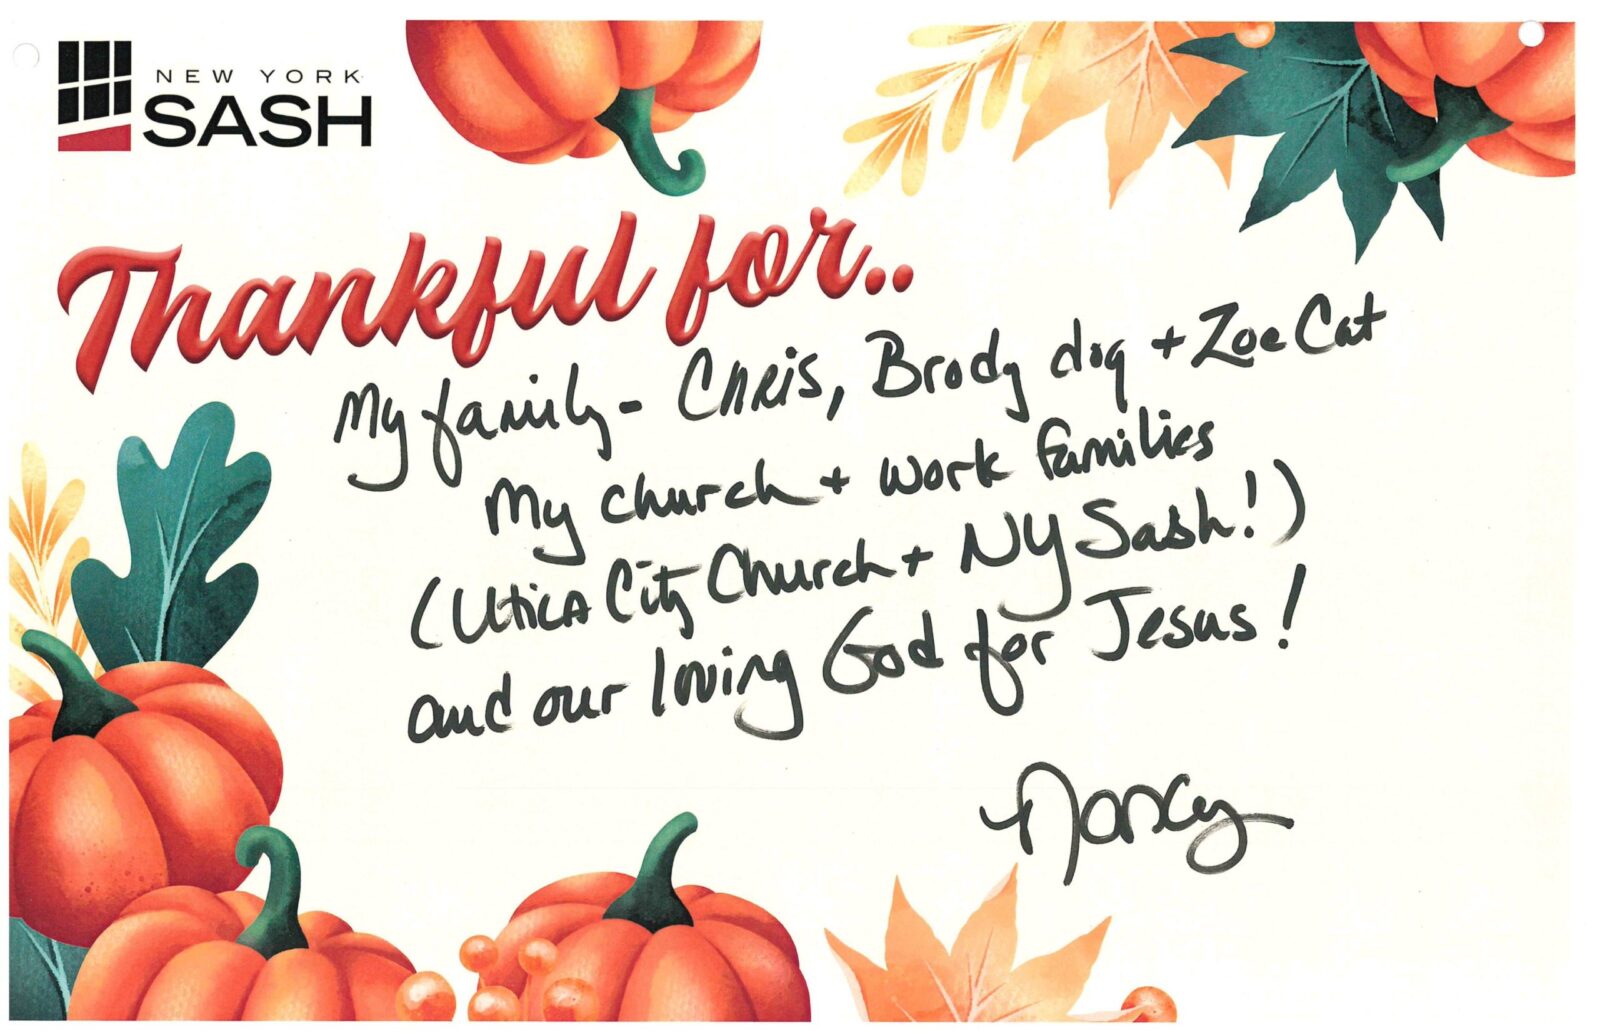 NEW YORK
SASH
Thankful for..
My family - CHRIS, Brody dog + Zoe Cat
My church + work families
(Utica City Church + NY Sash!)
and our loving God for Jesus!
Nancy